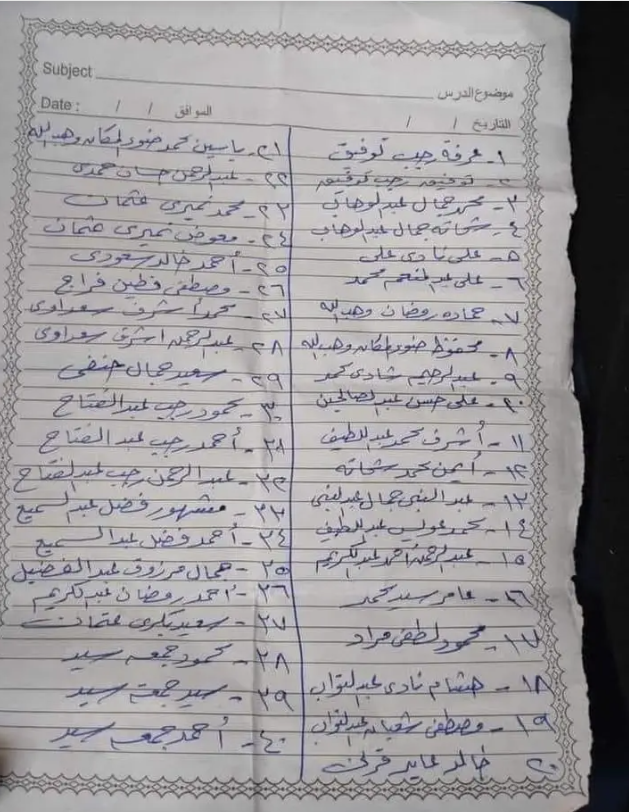 Subject
موضوع الدرس
Date : / /
الموافق
التاريخ / /
١- عرفة رجب توفيق
٢- توفيق رجب توفيق
٣- محمد جمال عبدالوهاب
٤- شحاته جمال عبدالوهاب
٥- على نادى على
٦- على عبدالمنعم محمد
٧- حماده رمضان وهبه الله
٨- محفوظ ضنوى وهبه الله
٩- عبدالرحيم شادى محمد
١٠- على حسن عبدالصالحين
١١- أشرف محمد عبداللطيف
١٢- أيمن محمد شحاته
١٣- عبد الغنى جمال عبدالغنى
١٤- محمد عويس عبداللطيف
١٥- عبدالرحمن أحمد عبدالكريم
١٦- عامر سيد محمد
١٧- محمود لطفى مراد
١٨- هشام نادى عبدالتواب
١٩- مصطفى شعبان عبدالتواب
٢٠- خالد عايد قرنى
٢١- ياسين محمد وهبه الله
٢٢- عبدالرحمن حسان حمدى
٢٣- محمد نميرى عثمان
٢٤- معوض نميرى عثمان
٢٥- أحمد خالد سعودى
٢٦- مصطفى فراج
٢٧- محمد أشرف سعداوى
٢٨- عبدالرحمن اشرف سعداوى
٢٩- سعيد جمال حنفى
٣٠- محمود رجب عبدالفتاح
٣١- أحمد رجب عبد الفتاح
٣٢- عبد الرحمن رجب عبدالفتاح
٣٣- مشهور فضل عبد السميع
٣٤- أحمد فضل عبد السميع
٣٥- جمال مرزوق عبد الفضيل
٣٦- احمد رمضان عبدالكريم
٣٧- سعيد بكرى عثمان
٣٨- محمود جمعه سيد
٣٩- سيد جمعه سيد
٤٠- أحمد جمعه سيد